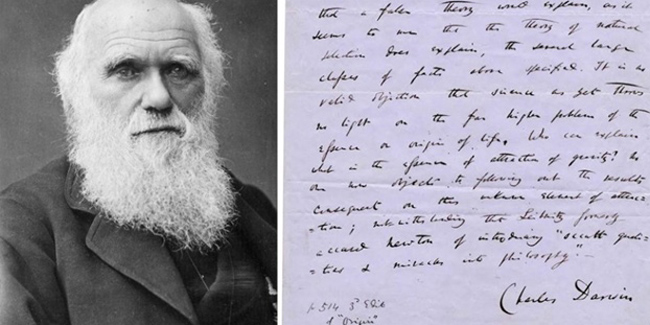 that a false theory would explain, as it
seems to me that the theory of natural
selection does explain, the several large
classes of facts above specified. It is no
valid objection that science as yet throws
no light on the far higher problem of the
essence or origin of life. Who can explain
what is the essence of attraction of gravity? No
one now objects to following out the results
consequent on this unknown element of attrac=
=tion; notwithstanding that Leibnitz formerly
accused Newton of introducing "occult quali=
=ties & miracles into philosophy".—
Charles Darwin
p 514 3d Edit
of "Origin"